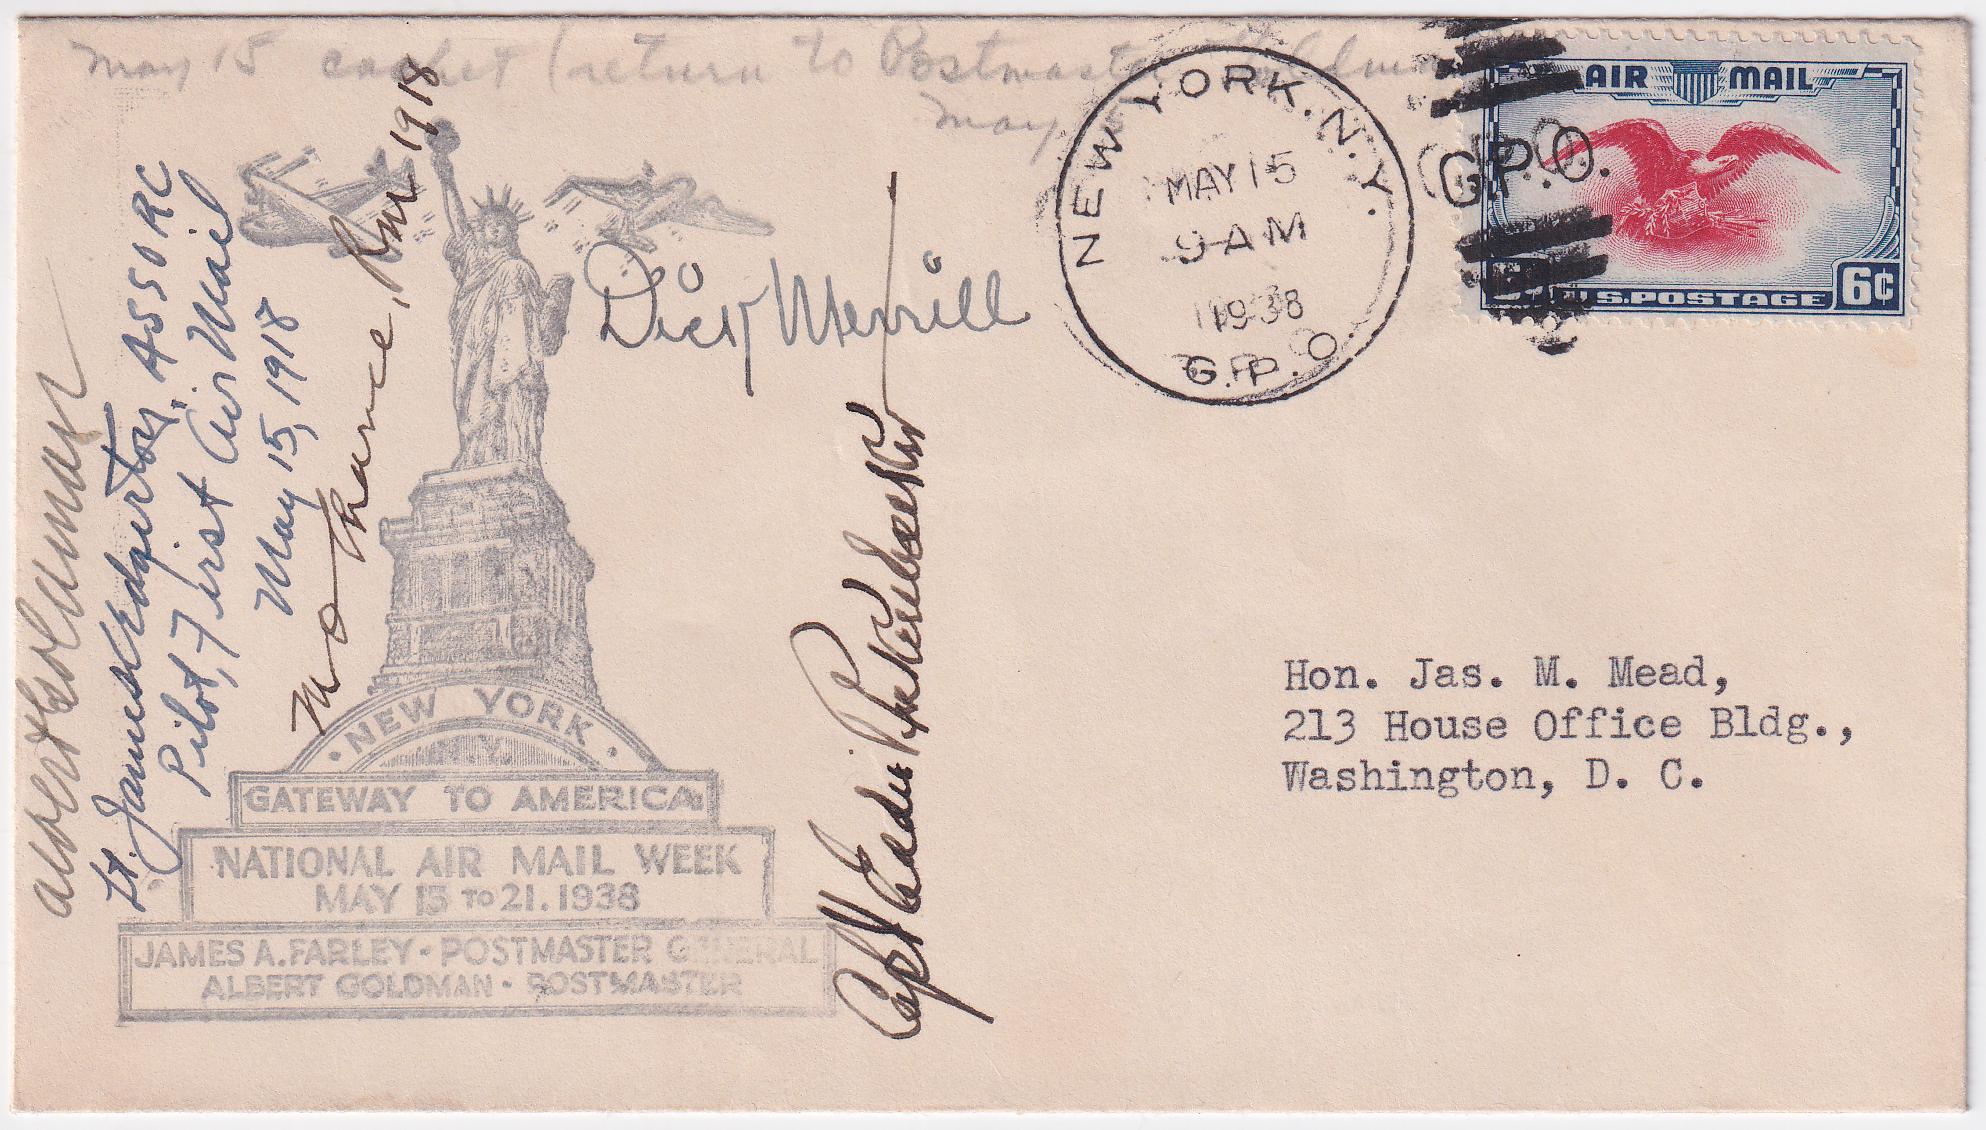 May 15 cachet (return to Postmaster
May 15
AIR MAIL
U.S. POSTAGE 6¢
G.P.O.
NEW YORK, N.Y.
MAY 15
9-AM
1938
G.P.O.
Albert Goldman
Lt. James Edgerton, ASSORC
Pilot, First Air Mail
May 15, 1918
1918
Dick Merrill
Capt Eddie Rickenbacker
NEW YORK
N.Y.
GATEWAY TO AMERICA
NATIONAL AIR MAIL WEEK
MAY 15 TO 21. 1938
JAMES A. FARLEY - POSTMASTER GENERAL
ALBERT GOLDMAN - POSTMASTER
Hon. Jas. M. Mead,
213 House Office Bldg.,
Washington, D. C.